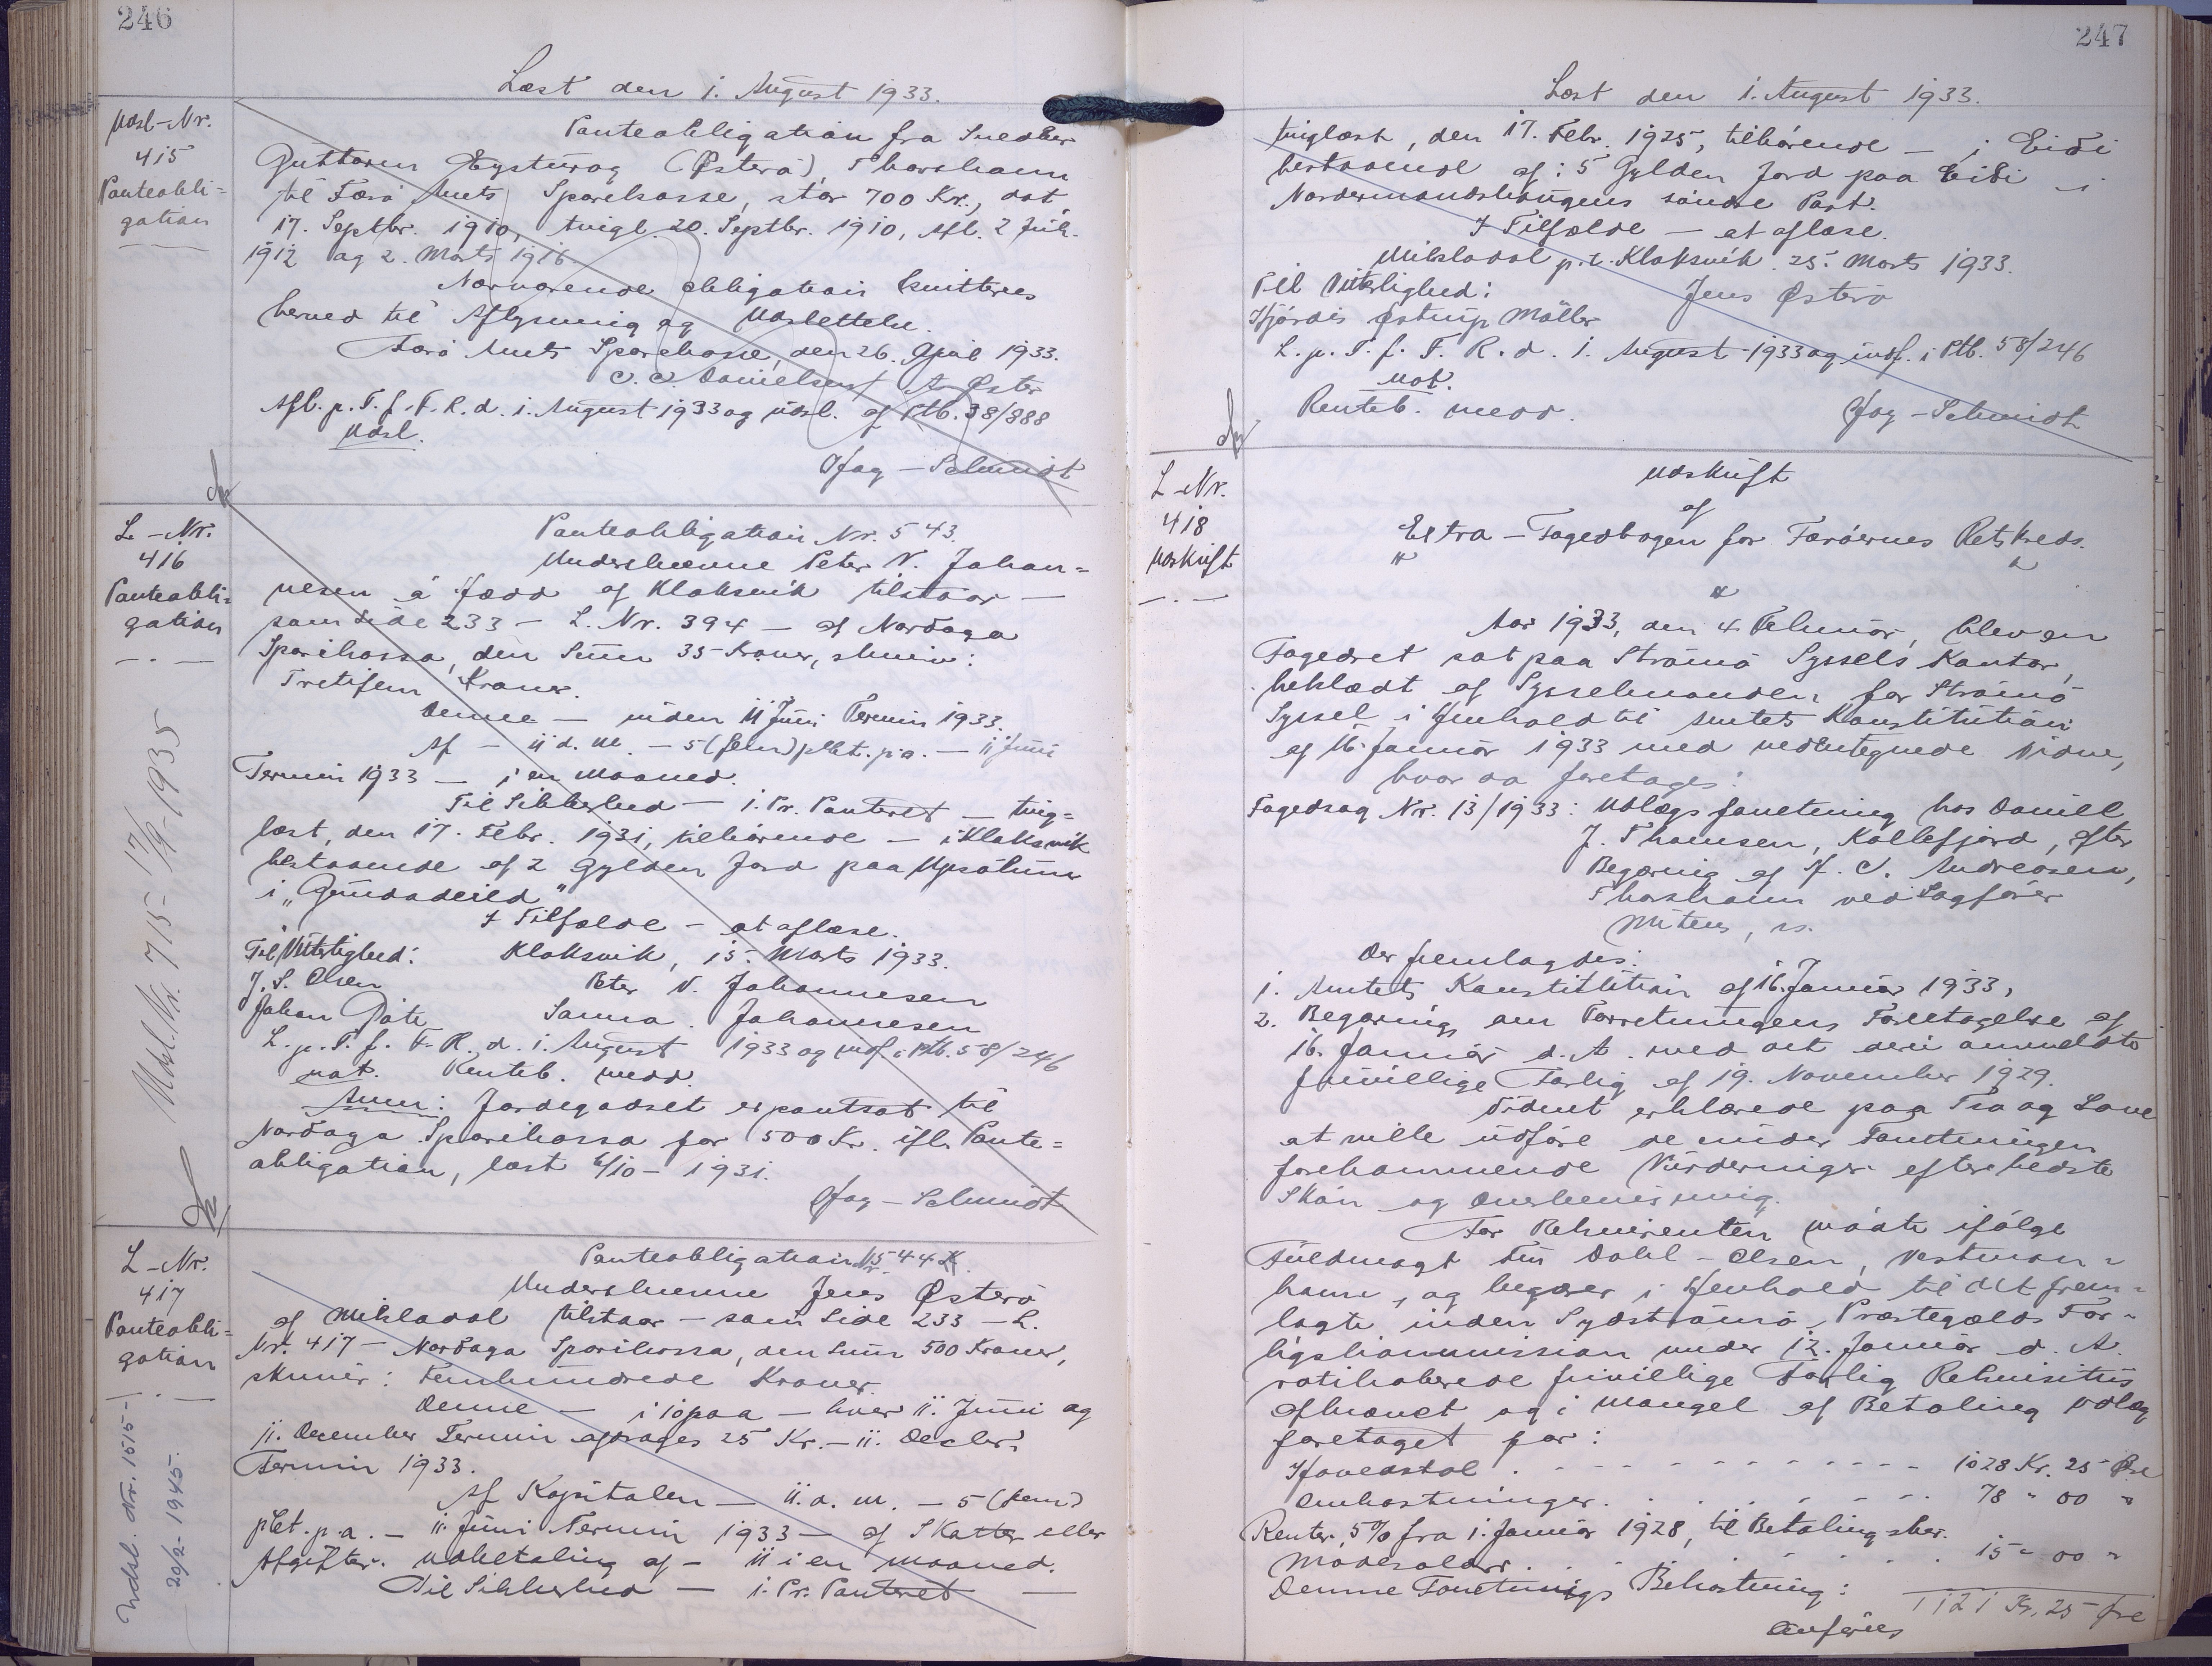 246
Læst den 1. August 1933.
Udsl-Nr.
415
Panteobli=
gation
Panteobligation fra Snedker
Guttorm Eysturoy (Østerø), Thorshavn
til Færø Amts Sparekasse, stor 700 Kr., dat.
17. Septbr. 1910, tingl. 20. Septbr. 1910, Afl. 2 Juli
1912 og 2. Marts 1916.
Nærværende Obligation kvitteres
herved til Aflysning og Udslettelse.
Færø Amts Sparekasse, den 26. April 1933.
C. C. Danielsen / A. Øster
Afl. p. T. f. F. R. d. 1. August 1933 og udsl. af Ptb. 38/888
Udsl.
Fog-Schmidt
L-Nr.
416
Panteobli=
gation
Udsl. Nr. 715 - 17/9-1935
Panteobligation Nr. 543.
Underskrevne Peter N. Johan=
nesen á Hædd af Klaksvik tilstaar —
som Side 233 - L. Nr. 394 — af Nordoya
Sparikassa, den Sum 35 Kroner, skriver:
Tretifem Kroner.
Denne — inden 11 Juni Termin 1933.
Af — 11 d. M. — 5 (fem) pCt. p. a. — 11 Juni
Termin 1933 — i en Maaned.
Til Sikkerhed — 1. Pr. Panteret — ting=
læst, den 17. Febr. 1931, tilhørende — i Klaksvik
bestaaende af 2 Gylden Jord paa Uppsølum
i „Grundadeild"
I Tilfælde — at aflæse.
Til Vitterlighed: Klaksvik, 15. Marts 1933.
J. S. Olsen Peter N. Johannesen
Johan Sanna Johannesen
L. p. T. f. F. R. d. 1. August 1933 og indf. i Ptb. 58/246
not. Renteb. medd.
Anm: Jordegodset er pantsat til
Nordoya Sparikassa for 500 Kr. ifl. Pante=
obligation, læst 6/10 - 1931.
Fog-Schmidt
L-Nr.
417
Panteobli=
gation
Udsl. Nr. 1515 -
20/2 1945.
Panteobligation Nr. 544.
Underskrevne Jens Østerø
af Mikladal tilstaar — som Side 233 — L.
Nr. 417 — Nordoya Sparikassa, den Sum 500 Kroner,
skriver: Femhundrede Kroner.
Denne — i 10 paa — hver 11. Juni og
11. December Termin afdrages 25 Kr. — 11. Decbr.
Termin 1933.
Af Kapitalen — 11. d. M. — 5 (fem)
pCt. p. a. — 11 Juni Termin 1933 — af Skatter eller
Afgifter. Udbetaling af — 11 i en Maaned.
Til Sikkerhed — 1. Pr. Panteret —
247
Læst den 1. August 1933.
tinglæst, den 17. Febr. 1925, tilhørende — i Eidi
bestaaende af: 5 Gylden Jord paa Eidi — i
Nordermandshaugens søndre Part.
I Tilfælde — at aflæse.
Mikladal p. t. Klaksvik 25. Marts 1933.
Til Vitterlighed: Jens Østerø
Hjørdis Østrup Møller
L. p. T. f. F. R. d. 1. August 1933 og indf. i Ptb. 58/246
not.
Renteb. medd. Fog-Schmidt
L-Nr.
418
Udskrift
Udskrift
af
Extra-Fogedbogen for Færøernes Retskreds.
Aar 1933, den 4 Februar, blev en
Fogedret sat paa Strømø Syssels Kontor,
beklædt af Sysselmanden for Strømø
Syssel i Henhold til Amtets Konstitution
af 16. Januar 1933 med medundertegnede Vidne,
hvor da foretages:
Fogedsag Nr. 13/1933: Udlægsforretning hos Daniel
J. Thomsen, Kollefjord, efter
Begæring af H. C. Andreasen,
Thorshavn ved Sagfører
Mitens, rs.
Der fremlagdes:
1. Amtets Konstitution af 16. Januar 1933,
2. Begæring om Forretningens Foretagelse af
16. Januar d. A. med det deri anmeldte
frivillige Forlig af 19. November 1929.
Vidnet erklærede paa Tro og Love
at ville udføre de under Forretningen
forekommende Vurderinger efter bedste
Skøn og Overbevisning.
For Rekvirenten mødte ifølge
Fuldmagt Dahl-Olsen, Vestman=
havn, og begærer i Henhold til det frem=
lagte inden Sydstrømø Præstegælds For=
ligskommission under 12. Januar d. A.
ratihaberede frivillige Forlig Rekvisitus
afkrævet og i Mangel af Betaling Udlæg
foretaget for:
Hovedstol . - - - - - - - - - - 1028 Kr. 25 Øre
Omkostninger. . . - - - - - 78 " 00 "
Renter, 5% fra 1. Januar 1928, til Betaling sker.
Mødesalær . . . . . . . . . 15 " 00 "
Denne Forretnings Bekostning:
1121 Kr. 25 Øre
Anføres